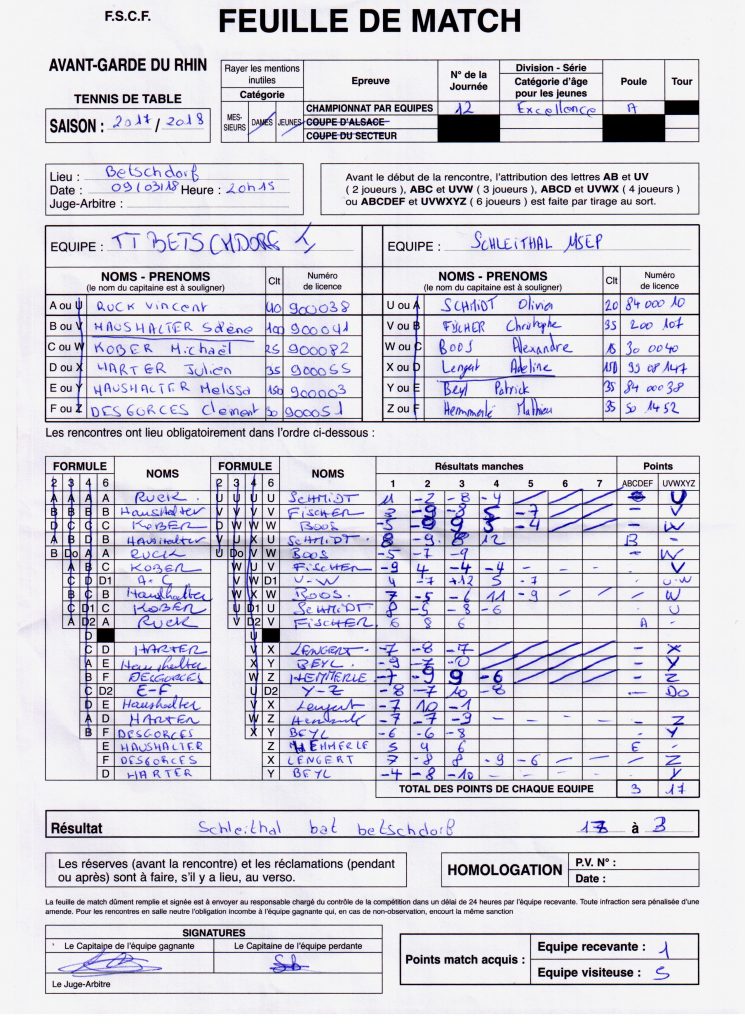 F.S.C.F.
FEUILLE DE MATCH
AVANT-GARDE DU RHIN
TENNIS DE TABLE
SAISON : 2017 / 2018
Rayer les mentions inutiles
Catégorie
MES-SIEURS DAMES JEUNES
Epreuve
N° de la Journée
Division - Série
Catégorie d'âge pour les jeunes
Poule
Tour
CHAMPIONNAT PAR EQUIPES 12 Excellence A
COUPE D'ALSACE
COUPE DU SECTEUR
Lieu : Betschdorf
Date : 09/03/18 Heure : 20h15
Juge-Arbitre :
Avant le début de la rencontre, l'attribution des lettres AB et UV
( 2 joueurs ), ABC et UVW ( 3 joueurs ), ABCD et UVWX ( 4 joueurs )
ou ABCDEF et UVWXYZ ( 6 joueurs ) est faite par tirage au sort.
EQUIPE : TT BETSCHDORF 1
EQUIPE : SCHLEITHAL MSEP
NOMS - PRENOMS
(le nom du capitaine est à souligner)
Clt
Numéro de licence
NOMS - PRENOMS
(le nom du capitaine est à souligner)
Clt
Numéro de licence
A ou U RUCK Vincent 40 900038
U ou A SCHMIDT Olivier 20 84 000 10
B ou V HAUSHALTER Solène 100 900041
V ou B FISCHER Christophe 35 200 107
C ou W KOBER Michaël 25 900082
W ou C BOOS Alexandre 15 30 0040
D ou X HARTER Julien 35 900055
X ou D Lengert Adeline 150 99 08 147
E ou Y HAUSHALTER Melissa 150 900003
Y ou E Beyl Patrick 35 84 000 38
F ou Z DESGORCES Clement 30 900051
Z ou F Hemmerlé Mathieu 35 50 1452
Les rencontres ont lieu obligatoirement dans l'ordre ci-dessous :
FORMULE NOMS FORMULE NOMS Résultats manches Points
2 3 4 6 2 3 4 6 1 2 3 4 5 6 7 ABCDEF UVWXYZ
A A A A RUCK U U U U SCHMIDT 11 -2 -8 -4 U
B B B B Haushalter V V V V FISCHER 3 -9 -3 5 -7 - V
D C C C KOBER D W W W BOOS -5 -9 9 3 -4 - W
A B D B Haushalter U V X U SCHMIDT 8 -9 8 12 B -
B Do A A RUCK U Do V W BOOS -5 -7 -9 - W
A B C KOBER W U V FISCHER -9 4 -4 -4 - V
C D D1 A-C V W D1 U-W 4 -7 +12 5 -7 U-W
B C B Haushalter W X W BOOS 7 -5 -6 11 -9 - W
C D1 C KOBER U D1 U SCHMIDT 8 -5 -8 -6 - U
A D2 A RUCK V D2 V FISCHER 6 8 6 A -
D U
C D HARTER V X LENGERT -7 -8 -7 - X
A E Haushalter X Y BEYL -9 -7 -0 - Y
B F DESGORCES W Z HEMMERLE -7 -9 9 -6 - Z
C D2 E-F U D2 Y-Z -8 -7 10 -8 - Do
D E Haushalter V X Lengert -7 10 -1
A D HARTER W Z -7 -7 -9 - Z
B F DESGORCES X Y BEYL -6 -6 -8 Y
E HAUSHALTER Z HEMMERLE 5 4 6 E -
F DESGORCES X LENGERT 7 -8 8 -9 -6 - Z
D HARTER Y BEYL -4 -8 -10 - Y
TOTAL DES POINTS DE CHAQUE EQUIPE 3 17
Résultat Schleithal bat betschdorf 17 à 3
Les réserves (avant la rencontre) et les réclamations (pendant
ou après) sont à faire, s'il y a lieu, au verso.
HOMOLOGATION
P.V. N° :
Date :
La feuille de match dûment remplie et signée est à envoyer au responsable chargé du contrôle de la compétition dans un délai de 24 heures par l'équipe recevante. Toute infraction sera pénalisée d'une
amende. Pour les rencontres en salle neutre l'obligation incombe à l'équipe gagnante qui, en cas de non-observation, encourt la même sanction
SIGNATURES
Le Capitaine de l'équipe gagnante
Le Capitaine de l'équipe perdante
Le Juge-Arbitre
Points match acquis :
Equipe recevante : 1
Equipe visiteuse : 5